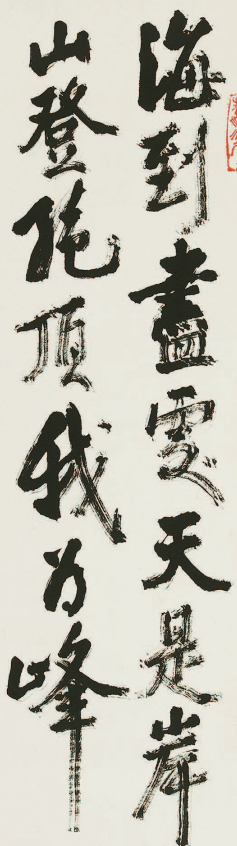 海到盡處天是岸
山登絶頂我为峰